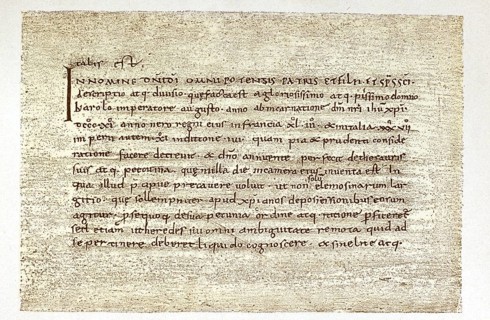 tabis est.
IN NOMINE DNI DI OMNIPOTENSIS PATRIS ET FILII ET SPS SCI
descriptio atq; divisio que facta est a gloriosissimo atq; piissimo domno
karolo imperatore augusto anno ab incarnatione dni nri ihu xpi
DCCCXI anno vero regni eius in francia XLIII & in italia XXXVII
imperii autem XI indictione IIII quam pia & prudenti conside
ratione facere decrevit & dno annuente perfecit de thesauris
suis atq; pecunia que in illa die in camera eius inventa est In
qua illud p
voluit ut non solu elemosinarum lar
gitio que sollemniter apud xpianos de possessionibus eorum
agitur p se quoq; de sua pecunia ordine atq; ratione pficere&
sed etiam ut heredes sui omni ambiguitate remota quid ad
se pertinere deberet liquido cognoscere & sine lite atq;